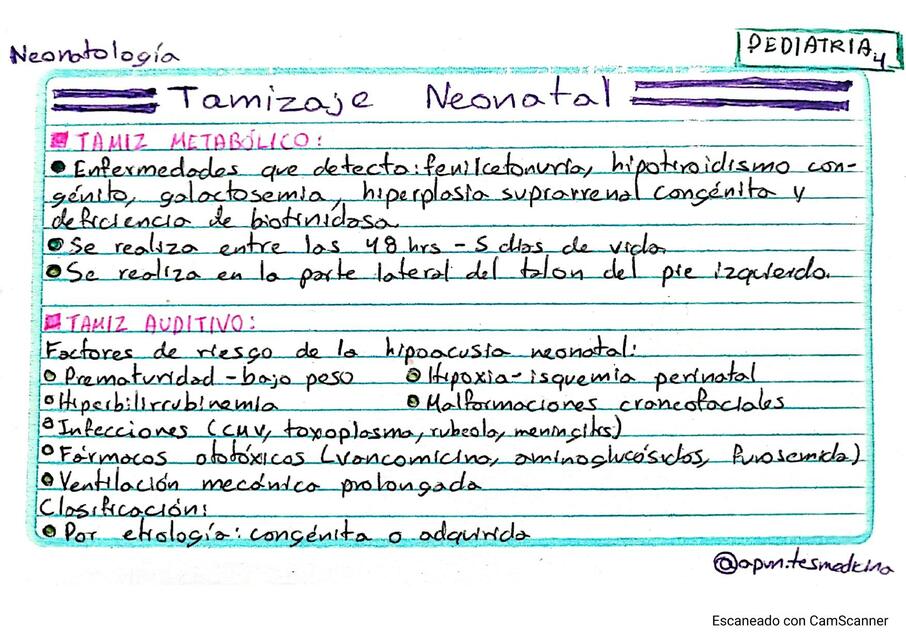 Neonatología
PEDIATRIA 4
Tamizaje Neonatal
TAMIZ METABÓLICO:
Enfermedades que detecta: fenilcetonuria, hipotiroidismo con-
génito, galactosemia, hiperplasia suprarrenal congénita y
deficiencia de biotinidasa.
Se realiza entre las 48 hrs - 5 días de vida.
Se realiza en la parte lateral del talon del pie izquierdo.
TAMIZ AUDITIVO:
Factores de riesgo de la hipoacusia neonatal:
Prematuridad - bajo peso
Hipoxia - isquemia perinatal
Hiperbilirrubinemia
Malformaciones craneofaciales
Infecciones (CMV, toxoplasma, rubeola, meningitis)
Fármacos ototóxicos (vancomicina, aminoglucósidos, furosemida)
Ventilación mecánica prolongada
Clasificación:
Por etiología: congénita o adquirida
@apuntesmedicina
Escaneado con CamScanner